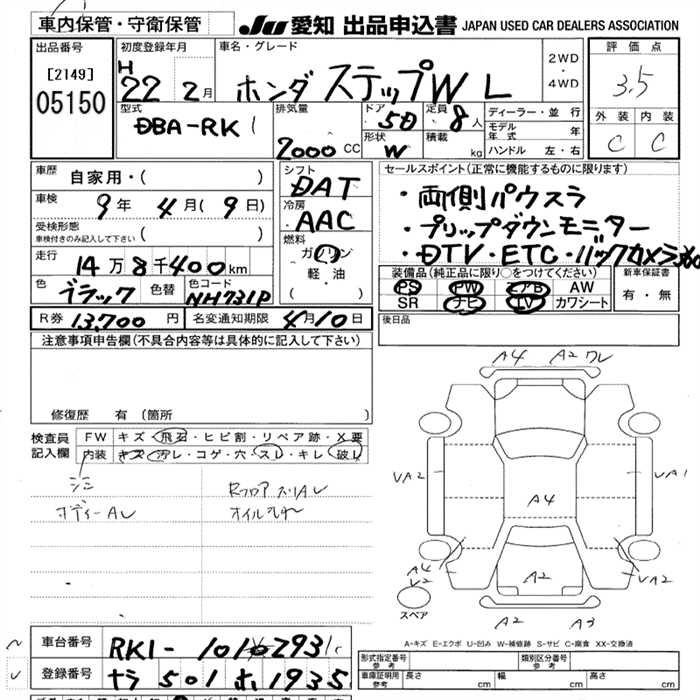 車内保管・守衛保管 JU 愛知 出品申込書 JAPAN USED CAR DEALERS ASSOCIATION
出品番号 初度登録年月 車名・グレード 評価点
[2149] H 22 2月 ホンダ ステップW L 2WD・4WD 3.5
05150 型式 排気量 ドア 定員 ディーラー・並行 外装 内装
DBA-RK1 2000CC 5D 8人 モデル年式 年 C C
形状 W 積載 kg ハンドル 左・右
車歴 自家用・( ) シフト セールスポイント(正常に機能するものに限ります)
DAT
車検 9年 4月(9日) 冷房 ・両側パワスラ
受検形態 AAC ・フリップダウンモニター
車検付きのみ記入して下さい ( ) 燃料 ・DTV・ETC・バックカメラ
走行 14万8千400km ガソリン 装備品(純正品に限り○をつけてください) 新車保証書
軽油 PS PW エアB AW 有・無
色 ブラック 色替 色コード NH731P ( ) SR ナビ TV カワシート
R券 13,700円 名変通知期限 4/10日 後日品
注意事項申告欄(不具合内容等は具体的に記入して下さい)
A4 A2 ワレ
修復歴 有(箇所 )
検査員 FW キズ・飛石・ヒビ割・リペア跡・X要
記入欄 内装 キズ・汚レ・コゲ・穴・スレ・キレ・破レ
VA2 VA1
シミ RフロアスリAU
ボディーAU オイル
A4
A4 V2 A2 VA2
スペア
A2 A3
A-キズ E-エクボ U-凹み W-補修跡 S-サビ C-腐食 XX-交換済
車台番号 RK1-1010293
型式指定番号 参考 類別区分番号 参考
登録番号 501 ホ 1935
車庫証明用 参考 長さ cm 幅 cm 高さ cm